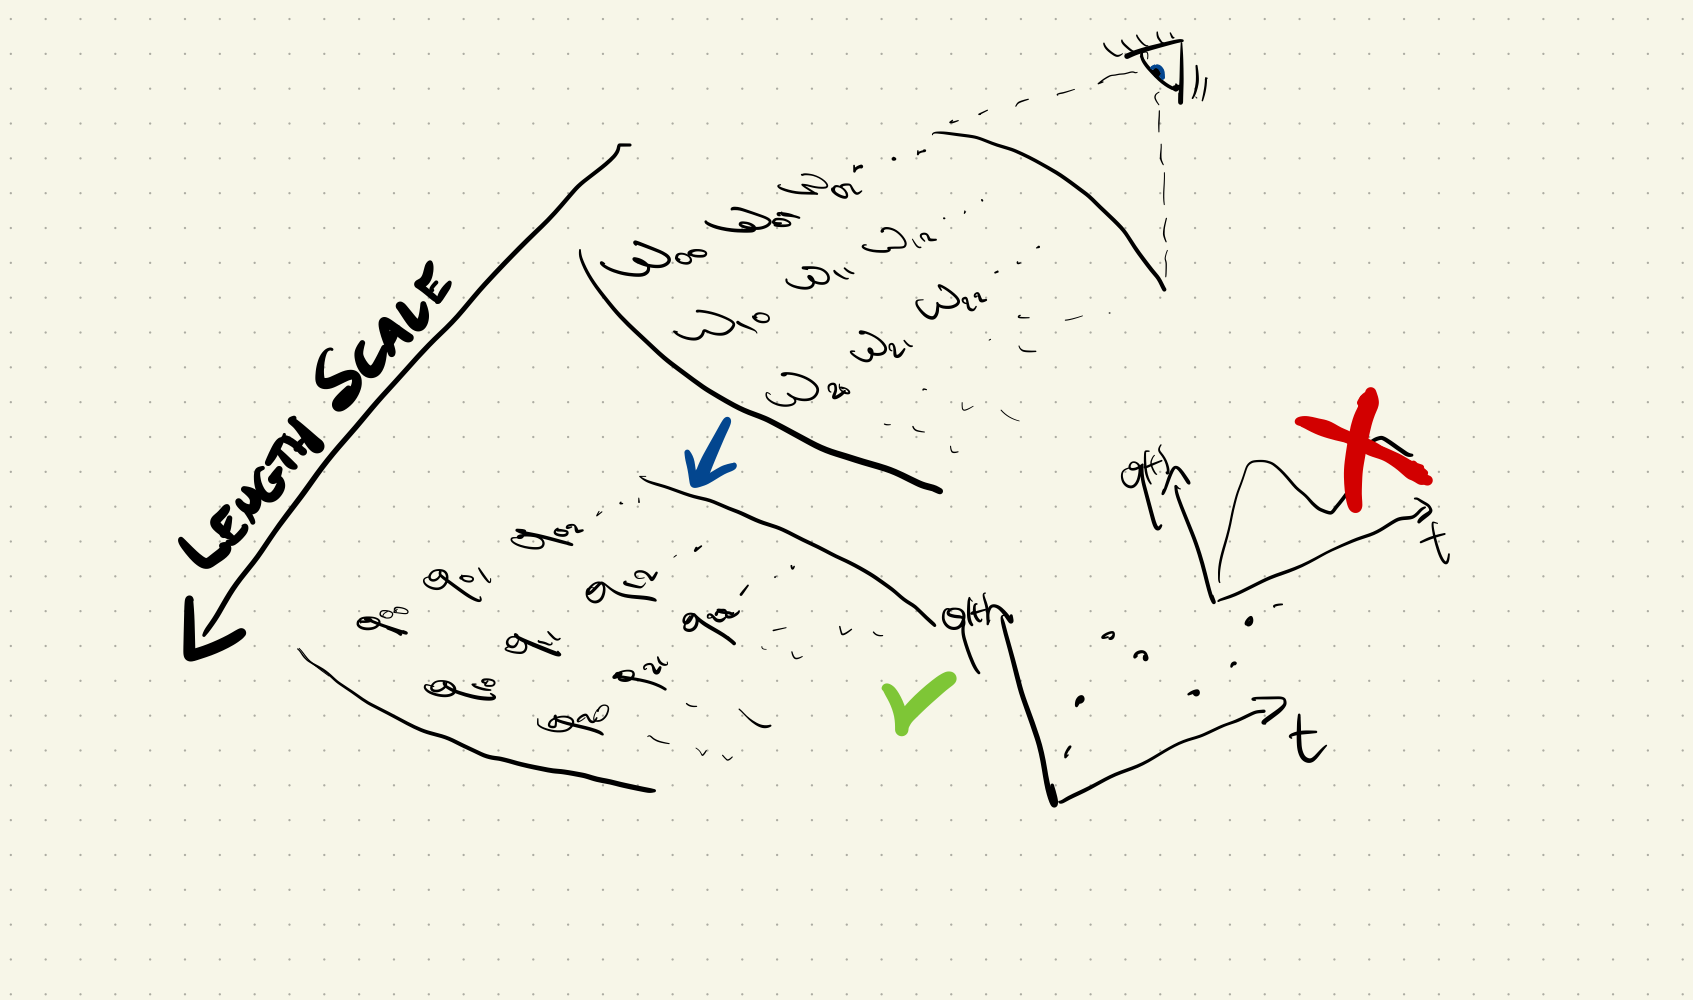 LENGTH SCALE
ω00 ω01 ω02
ω10 ω11 ω12
ω20 ω21 ω22
q00 q01 q02
q10 q11 q12
q20 q21 q22
q(t)
t
q(t)
t